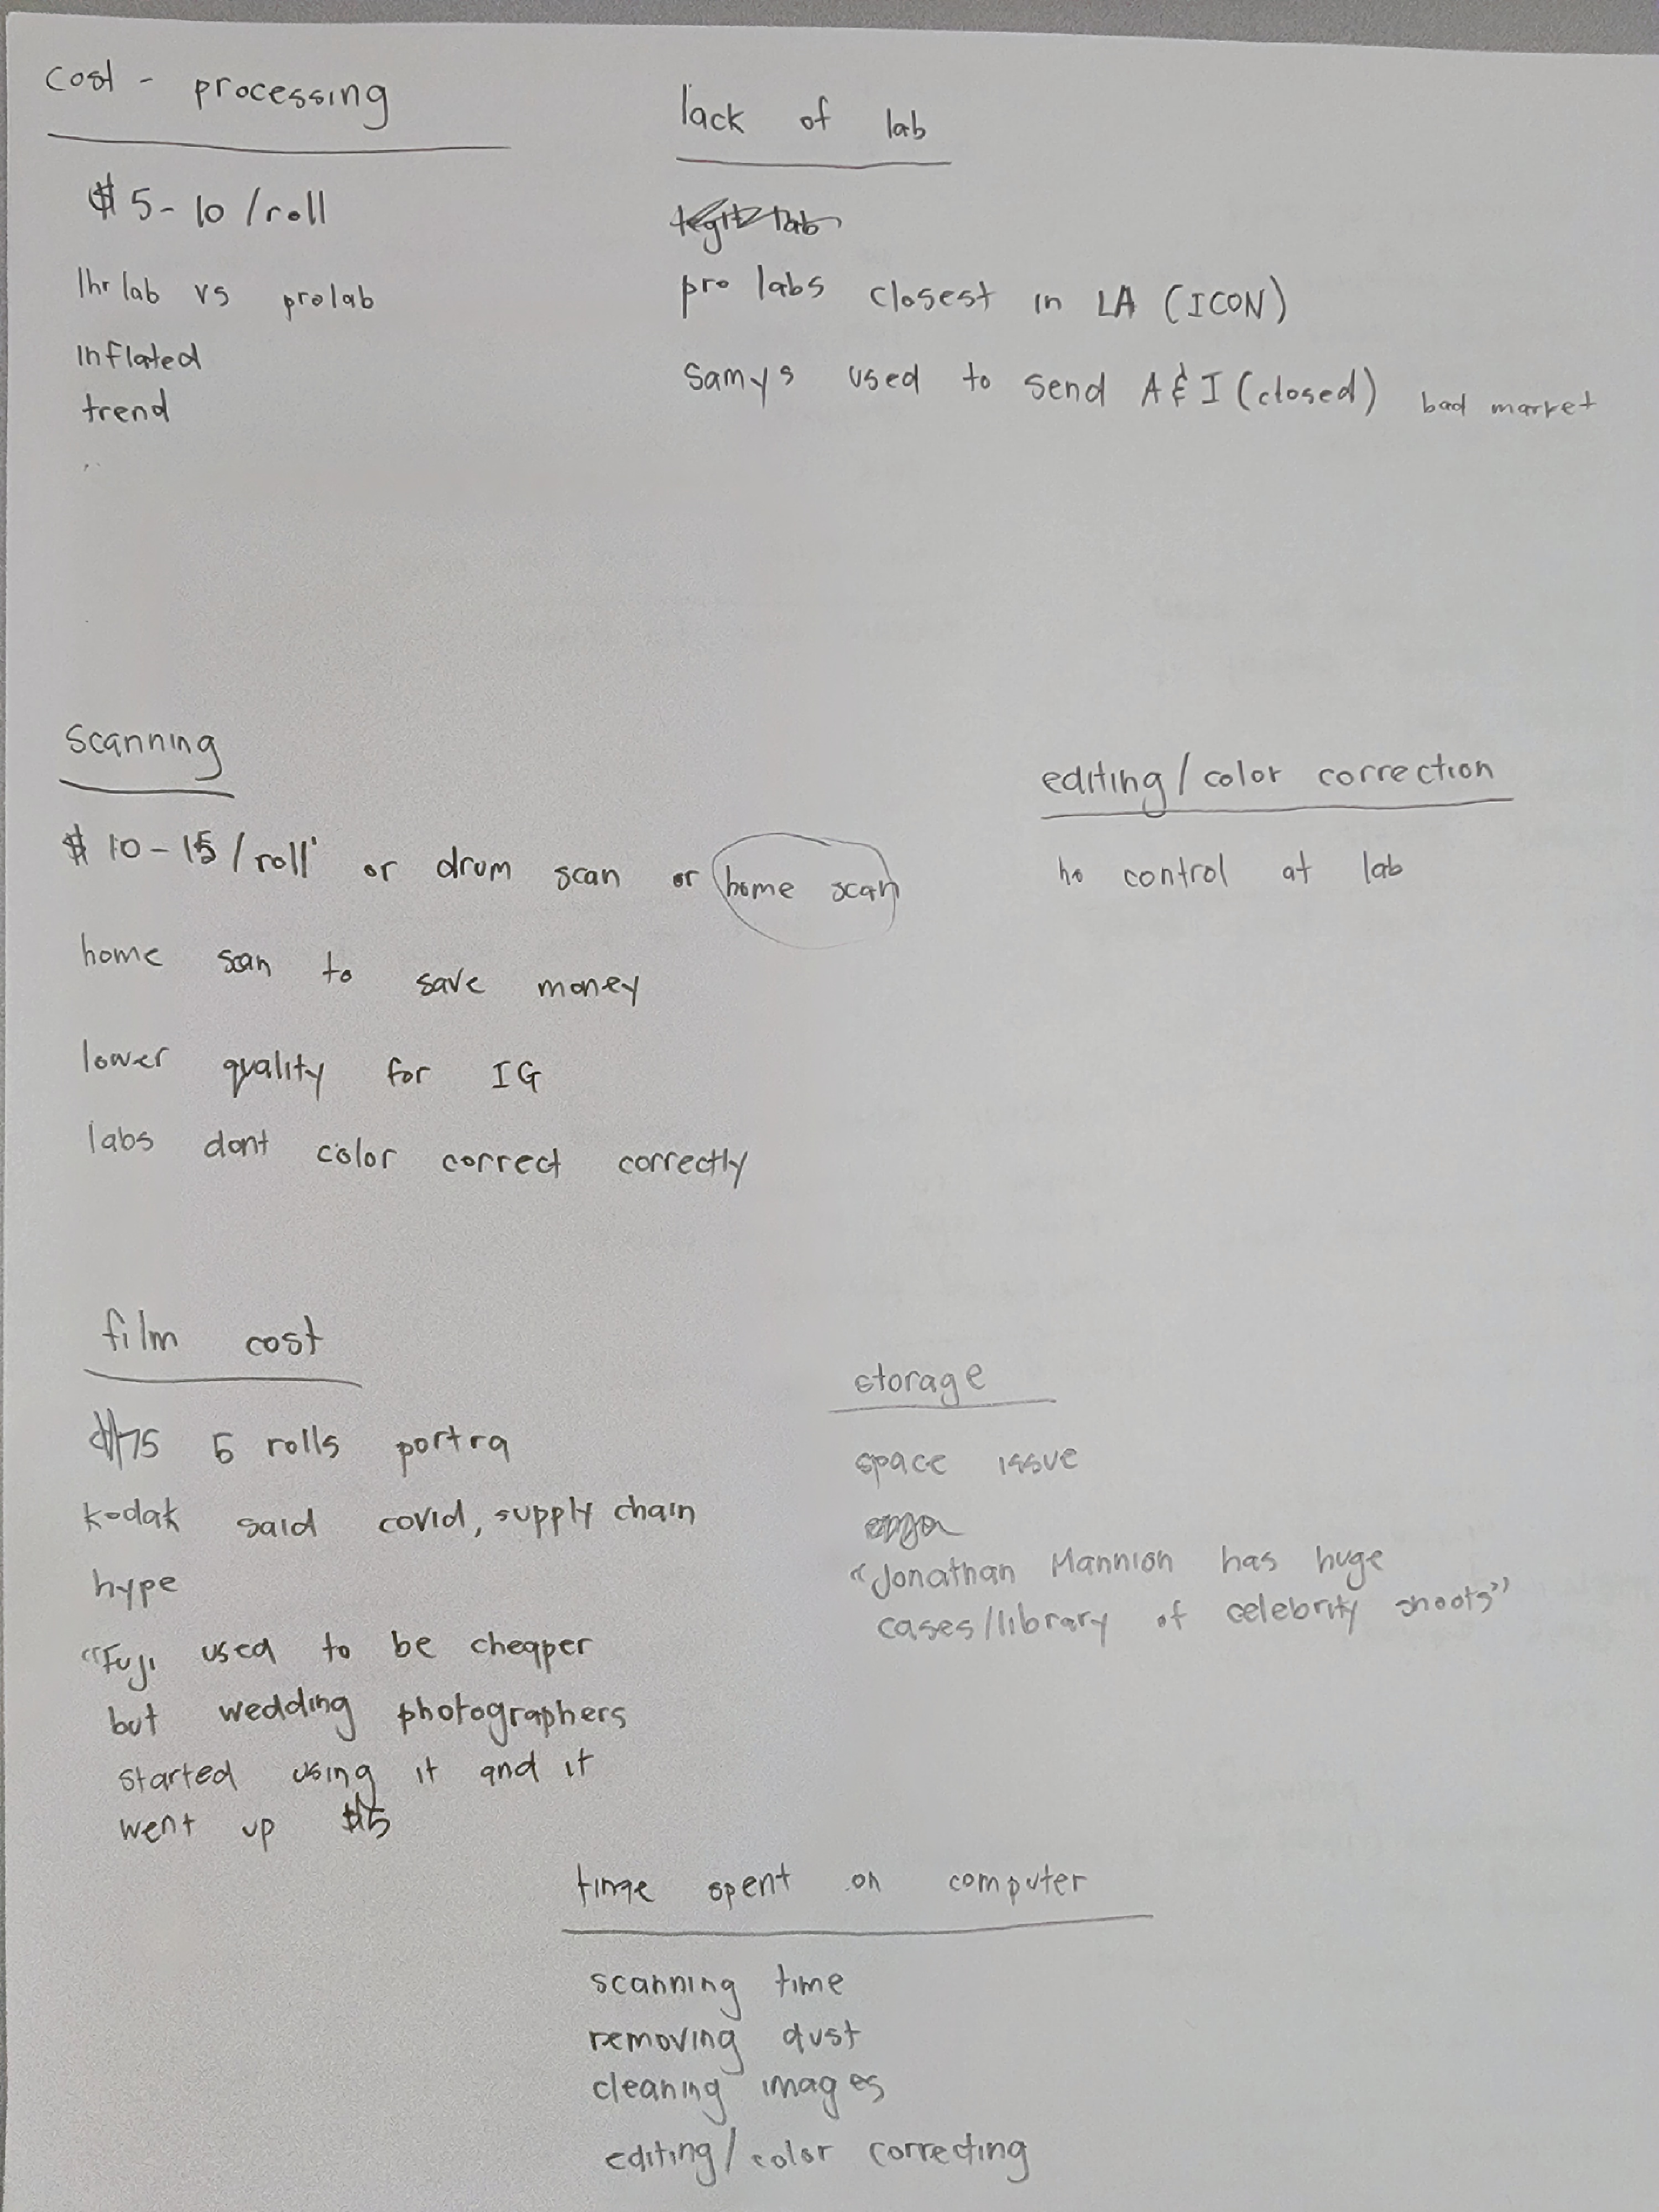 cost - processing
$5-10/roll
1hr lab vs prolab
inflated
trend
lack of lab
pro labs closest in LA (ICON)
samys used to send A&I (closed) bad market
scanning
$10-15/roll or drum scan or home scan
home scan to save money
lower quality for IG
labs dont color correct correctly
editing/color correction
no control at lab
film cost
$75 5 rolls portra
kodak said covid, supply chain
hype
"Fuji used to be cheaper
but wedding photographers
started using it and it
went up
storage
space issue
"Jonathan Mannion has huge
cases/library of celebrity shoots"
time spent on computer
scanning time
removing dust
cleaning images
editing/color correcting